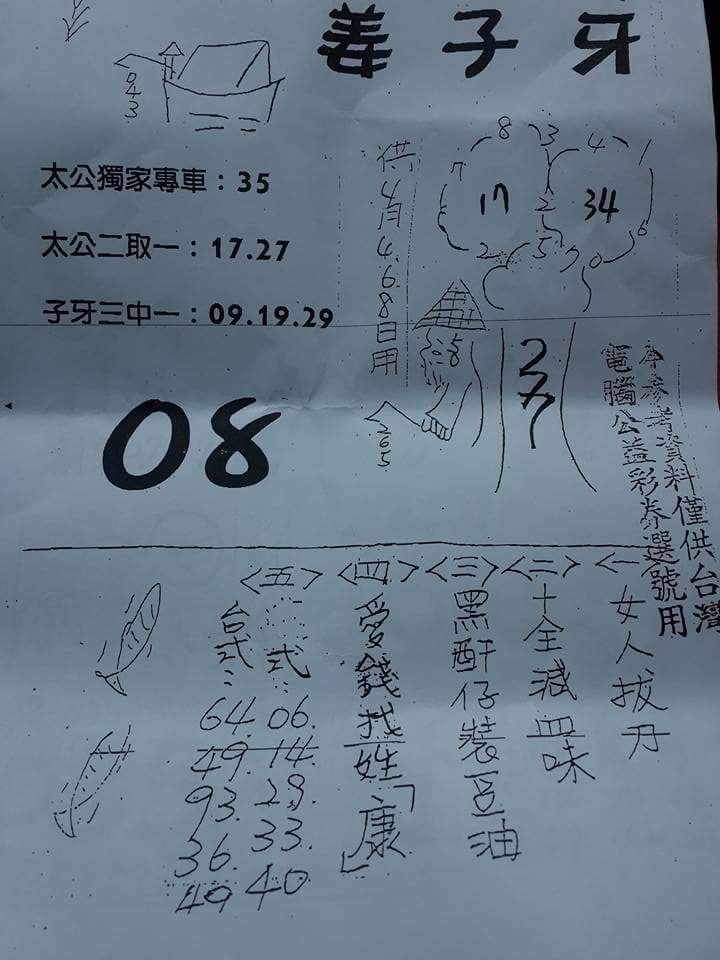 姜子牙
043
太公獨家專車：35
太公二取一：17.27
子牙三中一：09.19.29
08
供4月4.6.8日用
8
3
4
1
7
17
2
34
6
2
5
7
0
58
265
本參考資料僅供台灣
電腦公益彩券選號用
<一>女人拔丹
<二>十全減四味
<三>黑酐仔裝豆油
<四>愛錢找姓「康」
<五>
式：06.14.28.33.40
台式：64.49.93.36.49